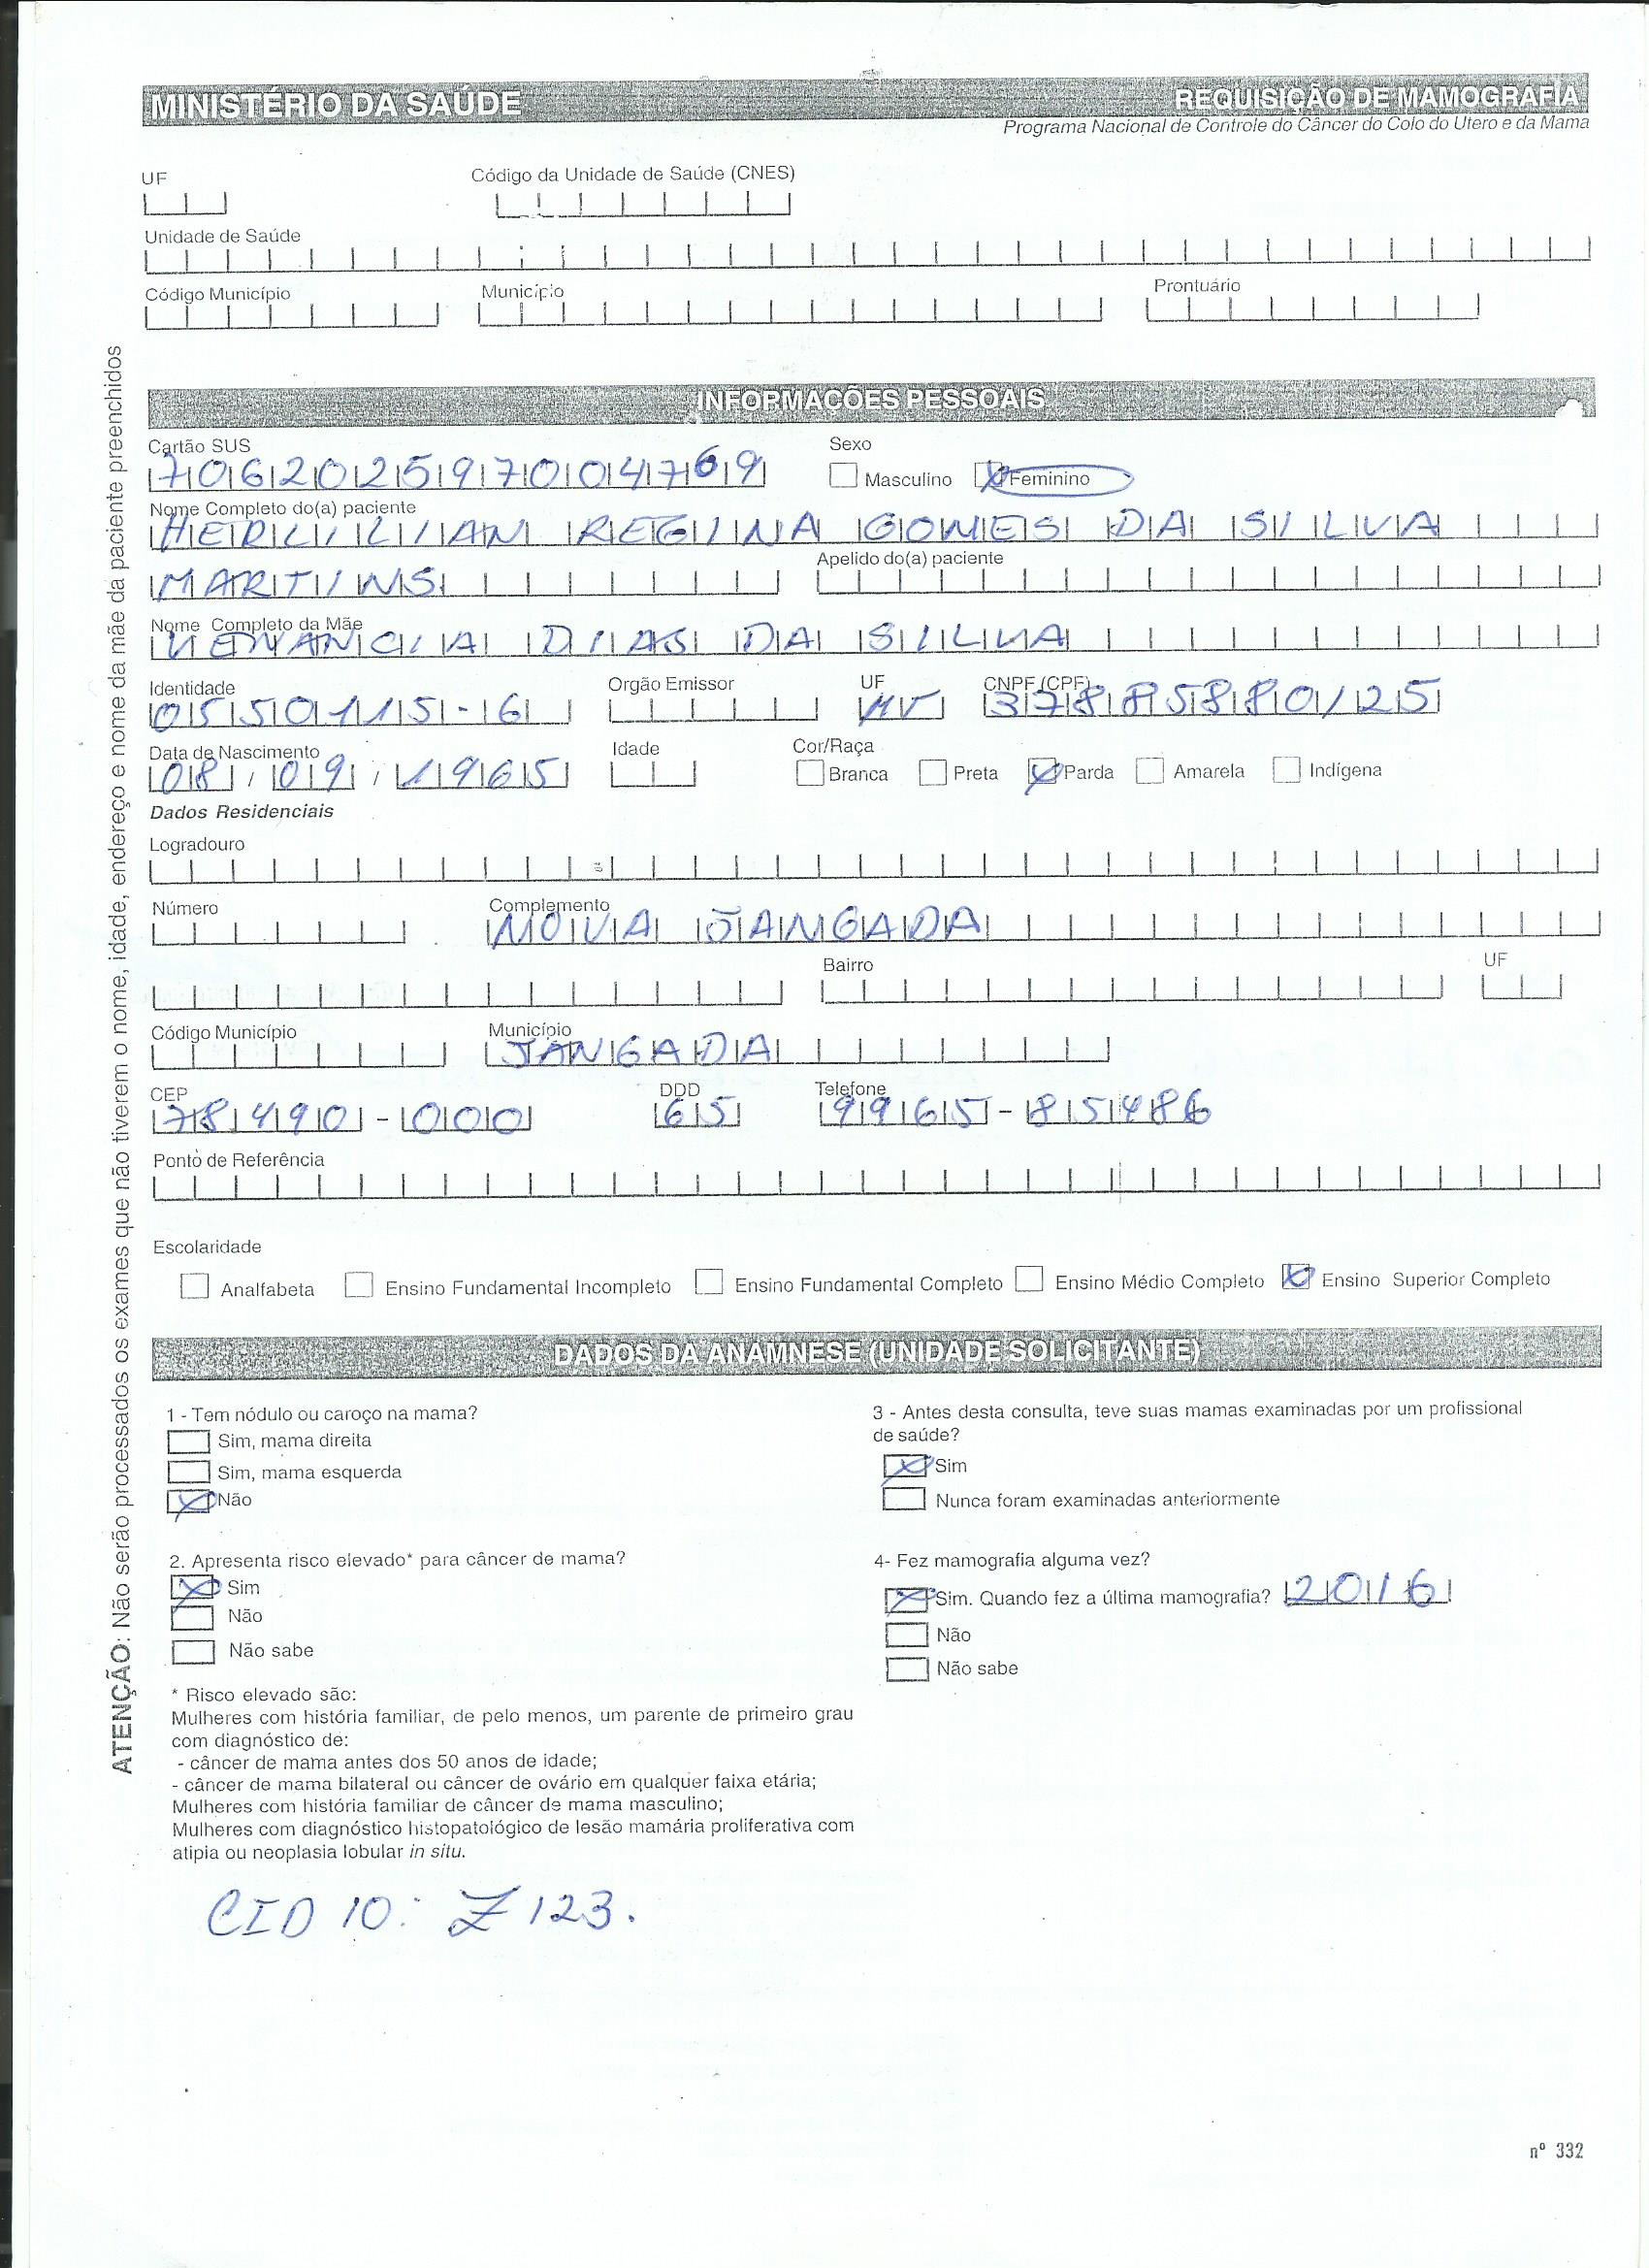 MINISTÉRIO DA SAÚDE
REQUISIÇÃO DE MAMOGRAFIA
Programa Nacional de Controle do Câncer do Colo do Utero e da Mama
UF
Código da Unidade de Saúde (CNES)
Unidade de Saúde
Código Município
Município
Prontuário
INFORMAÇÕES PESSOAIS
Cartão SUS
706202597004769
Sexo
Masculino
Feminino
Nome Completo do(a) paciente
HERLILIAN REGINA GOMES DA SILVA
MARTINS
Apelido do(a) paciente
Nome Completo da Mãe
VENANCIA DIAS DA SILVA
Identidade
0550115-6
Orgão Emissor
UF
MT
CNPF (CPF)
37885880/25
Data de Nascimento
08/09/1965
Idade
Cor/Raça
Branca
Preta
Parda
Amarela
Indígena
Dados Residenciais
Logradouro
Número
Complemento
NOVA JANGADA
Bairro
UF
Código Município
Município
JANGADA
CEP
78490-000
DDD
65
Telefone
9965-85486
Ponto de Referência
Escolaridade
Analfabeta
Ensino Fundamental Incompleto
Ensino Fundamental Completo
Ensino Médio Completo
Ensino Superior Completo
DADOS DA ANAMNESE (UNIDADE SOLICITANTE)
1 - Tem nódulo ou caroço na mama?
Sim, mama direita
Sim, mama esquerda
Não
2. Apresenta risco elevado* para câncer de mama?
Sim
Não
Não sabe
* Risco elevado são:
Mulheres com história familiar, de pelo menos, um parente de primeiro grau
com diagnóstico de:
- câncer de mama antes dos 50 anos de idade;
- câncer de mama bilateral ou câncer de ovário em qualquer faixa etária;
Mulheres com história familiar de câncer de mama masculino;
Mulheres com diagnóstico histopatológico de lesão mamária proliferativa com
atipia ou neoplasia lobular in situ.
3 - Antes desta consulta, teve suas mamas examinadas por um profissional
de saúde?
Sim
Nunca foram examinadas anteriormente
4- Fez mamografia alguma vez?
Sim. Quando fez a última mamografia? 2016
Não
Não sabe
CID 10: Z 123.
nº 332
ATENÇÃO: Não serão processados os exames que não tiverem o nome, idade, endereço e nome da mãe da paciente preenchidos